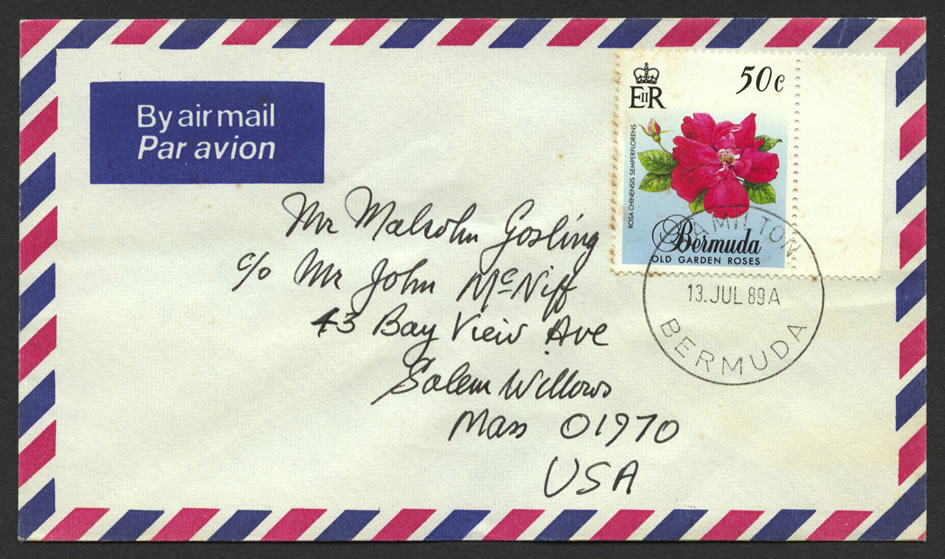 By air mail
Par avion
EIIR
50c
ROSA CHINENSIS SEMPERFLORENS
Bermuda
OLD GARDEN ROSES
HAMILTON
13.JUL 89A
BERMUDA
Mr Malcolm Gosling
c/o Mr John McNiff
43 Bay View Ave
Salem Willows
Mass 01970
USA